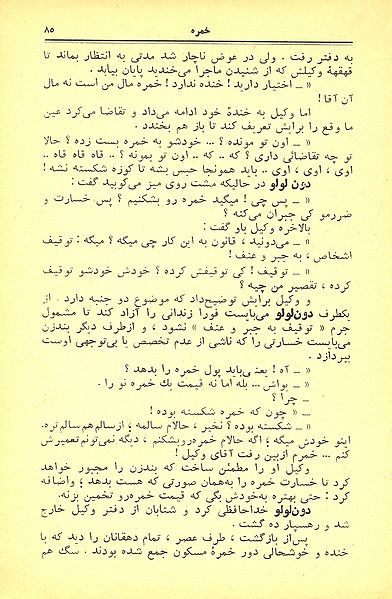 خمره
۸۵
به دفتر رفت . ولی در عوض ناچار شد مدتی به انتظار بماند تا
قهقههٔ وکیلش که از شنیدن ماجرا می‌خندید پایان بیابد .
« ــ اختیار دارید! خنده ندارد! خمره مال من است نه مال
آن آقا!
اما وکیل به خندهٔ خود ادامه می‌داد و تقاضا می‌کرد عین
ما وقع را برایش تعریف کند تا باز هم بخندد .
« ــ اون تو مونده ؟ ... خودشو به خمره بست زده ؟ حالا
تو چه تقاضائی داری ؟ که .. که .. اون تو بمونه ؟ .. قاه قاه قاه ..
اوی ، اوی ، اوی .. باید همونجا حبس بشه تا کوزه شکسته نشه!
دون‌لولو در حالیکه مشت روی میز می‌کوبید گفت :
ــ پس چی! میگید خمره رو بشکنیم ؟ پس خسارت و
ضررمو کی جبران می‌کنه ؟
بالاخره وکیل باو گفت :
« ــ می‌دونید ، قانون به این کار چی میگه ؟ میگه : توقیف
اشخاص ، به جبر و عنف!
« ــ توقیف! کی توقیفش کرده ؟ خودش خودشو توقیف
کرده ، تقصیر من چیه ؟
و وکیل برایش توضیح‌داد که موضوع دو جنبه دارد . از
یکطرف دون‌لولو می‌بایست فوراً زندانی را آزاد کند تا مشمول
جرم « توقیف به جبر و عنف » نشود ، و ازطرف دیگر بندزن
می‌بایست خسارتی را که ناشی از عدم تخصص یا بی‌توجهی اوست
بپردازد .
« ــ آه! یعنی‌باید پول خمره را بدهد ؟
ــ یواش ... بله اما نه قیمت یك خمره نو را .
ــ چرا ؟
ــ « چون که خمره شکسته بوده!
« ــ شکسته بوده ؟ نخیر ، حالام سالمه ؛ ازسالم‌هم‌سالم‌تره.
اینو خودش میگه ؛ اگه حالام خمره‌روبشکنم ، دیگه نمی‌تونم‌تعمیرش
کنم ... خمرم ازبین رفت آقای وکیل!
وکیل او را مطمئن ساخت که بندزن را مجبور خواهد
کرد تا خسارت خمره را به‌همان صورتی که هست بدهد ؛ واضافه
کرد : حتی بهتره به‌خودش بگی که قیمت خمره‌رو تخمین بزنه.
دون‌لولو خداحافظی کرد و شتابان از دفتر وکیل خارج
شد و رهسپار ده گشت .
پس‌از بازگشت ، طرف عصر ، تمام دهقانان را دید که با
خنده و خوشحالی دور خمرهٔ مسکون جمع شده بودند . سگ هم